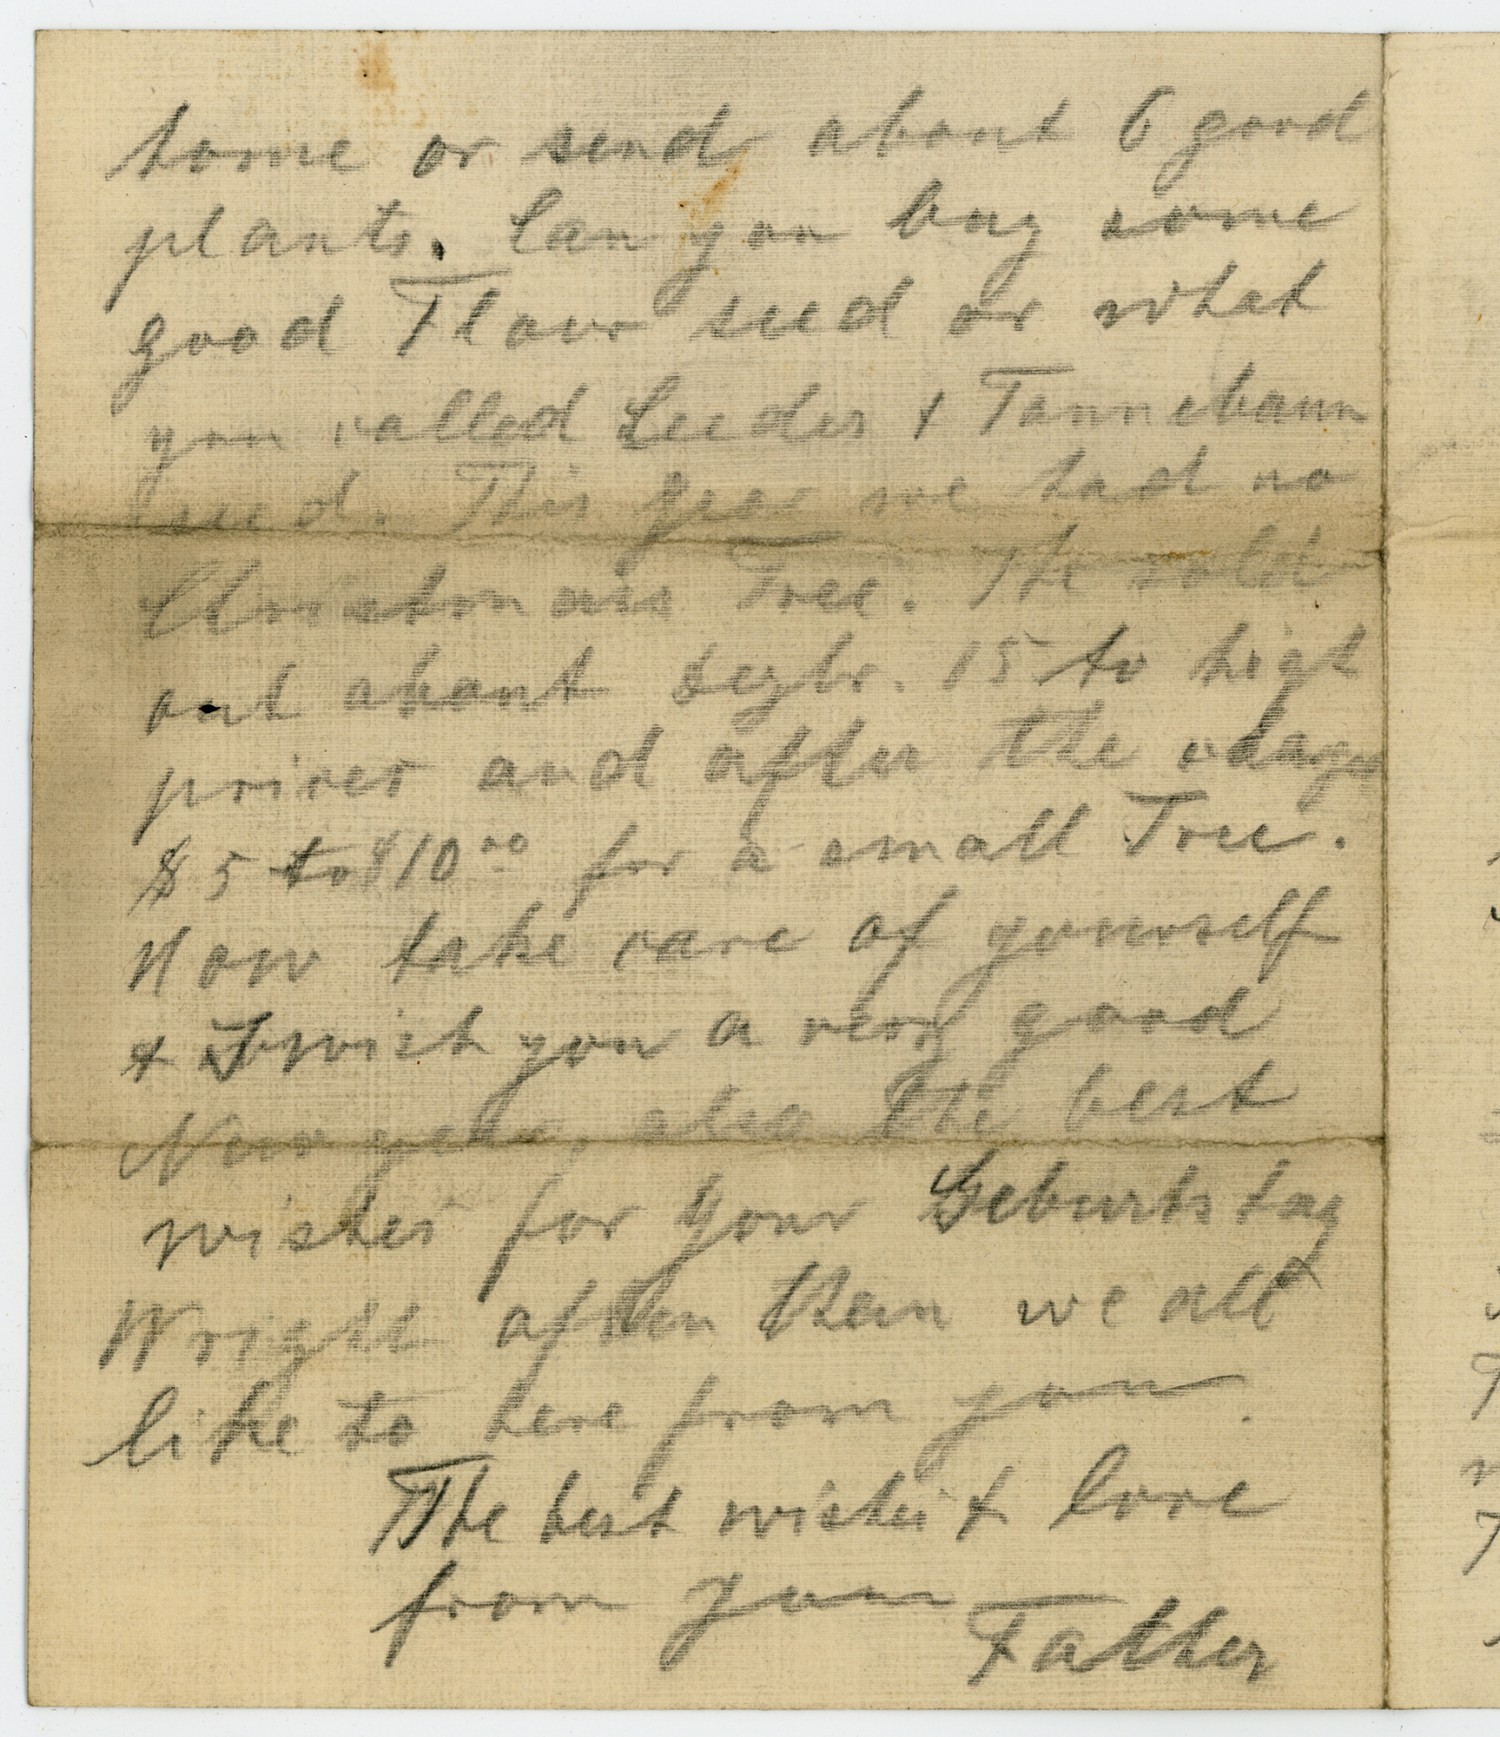 home or send about 6 good
plants. Can you buy some
good Flour seed or what
you called Leeder & Tannebaum
seed. This year we had no
Christmas Tree. The sold
out about Dezbr. 15 to high
prices and after the
$5 to $10.00 for a small Tree.
Now take care of yourself
& I wish you a very good
New year, also the best
wishes for your Geburtstag
Wright often then we all
like to here from you.
The best wishes & love
from your Father